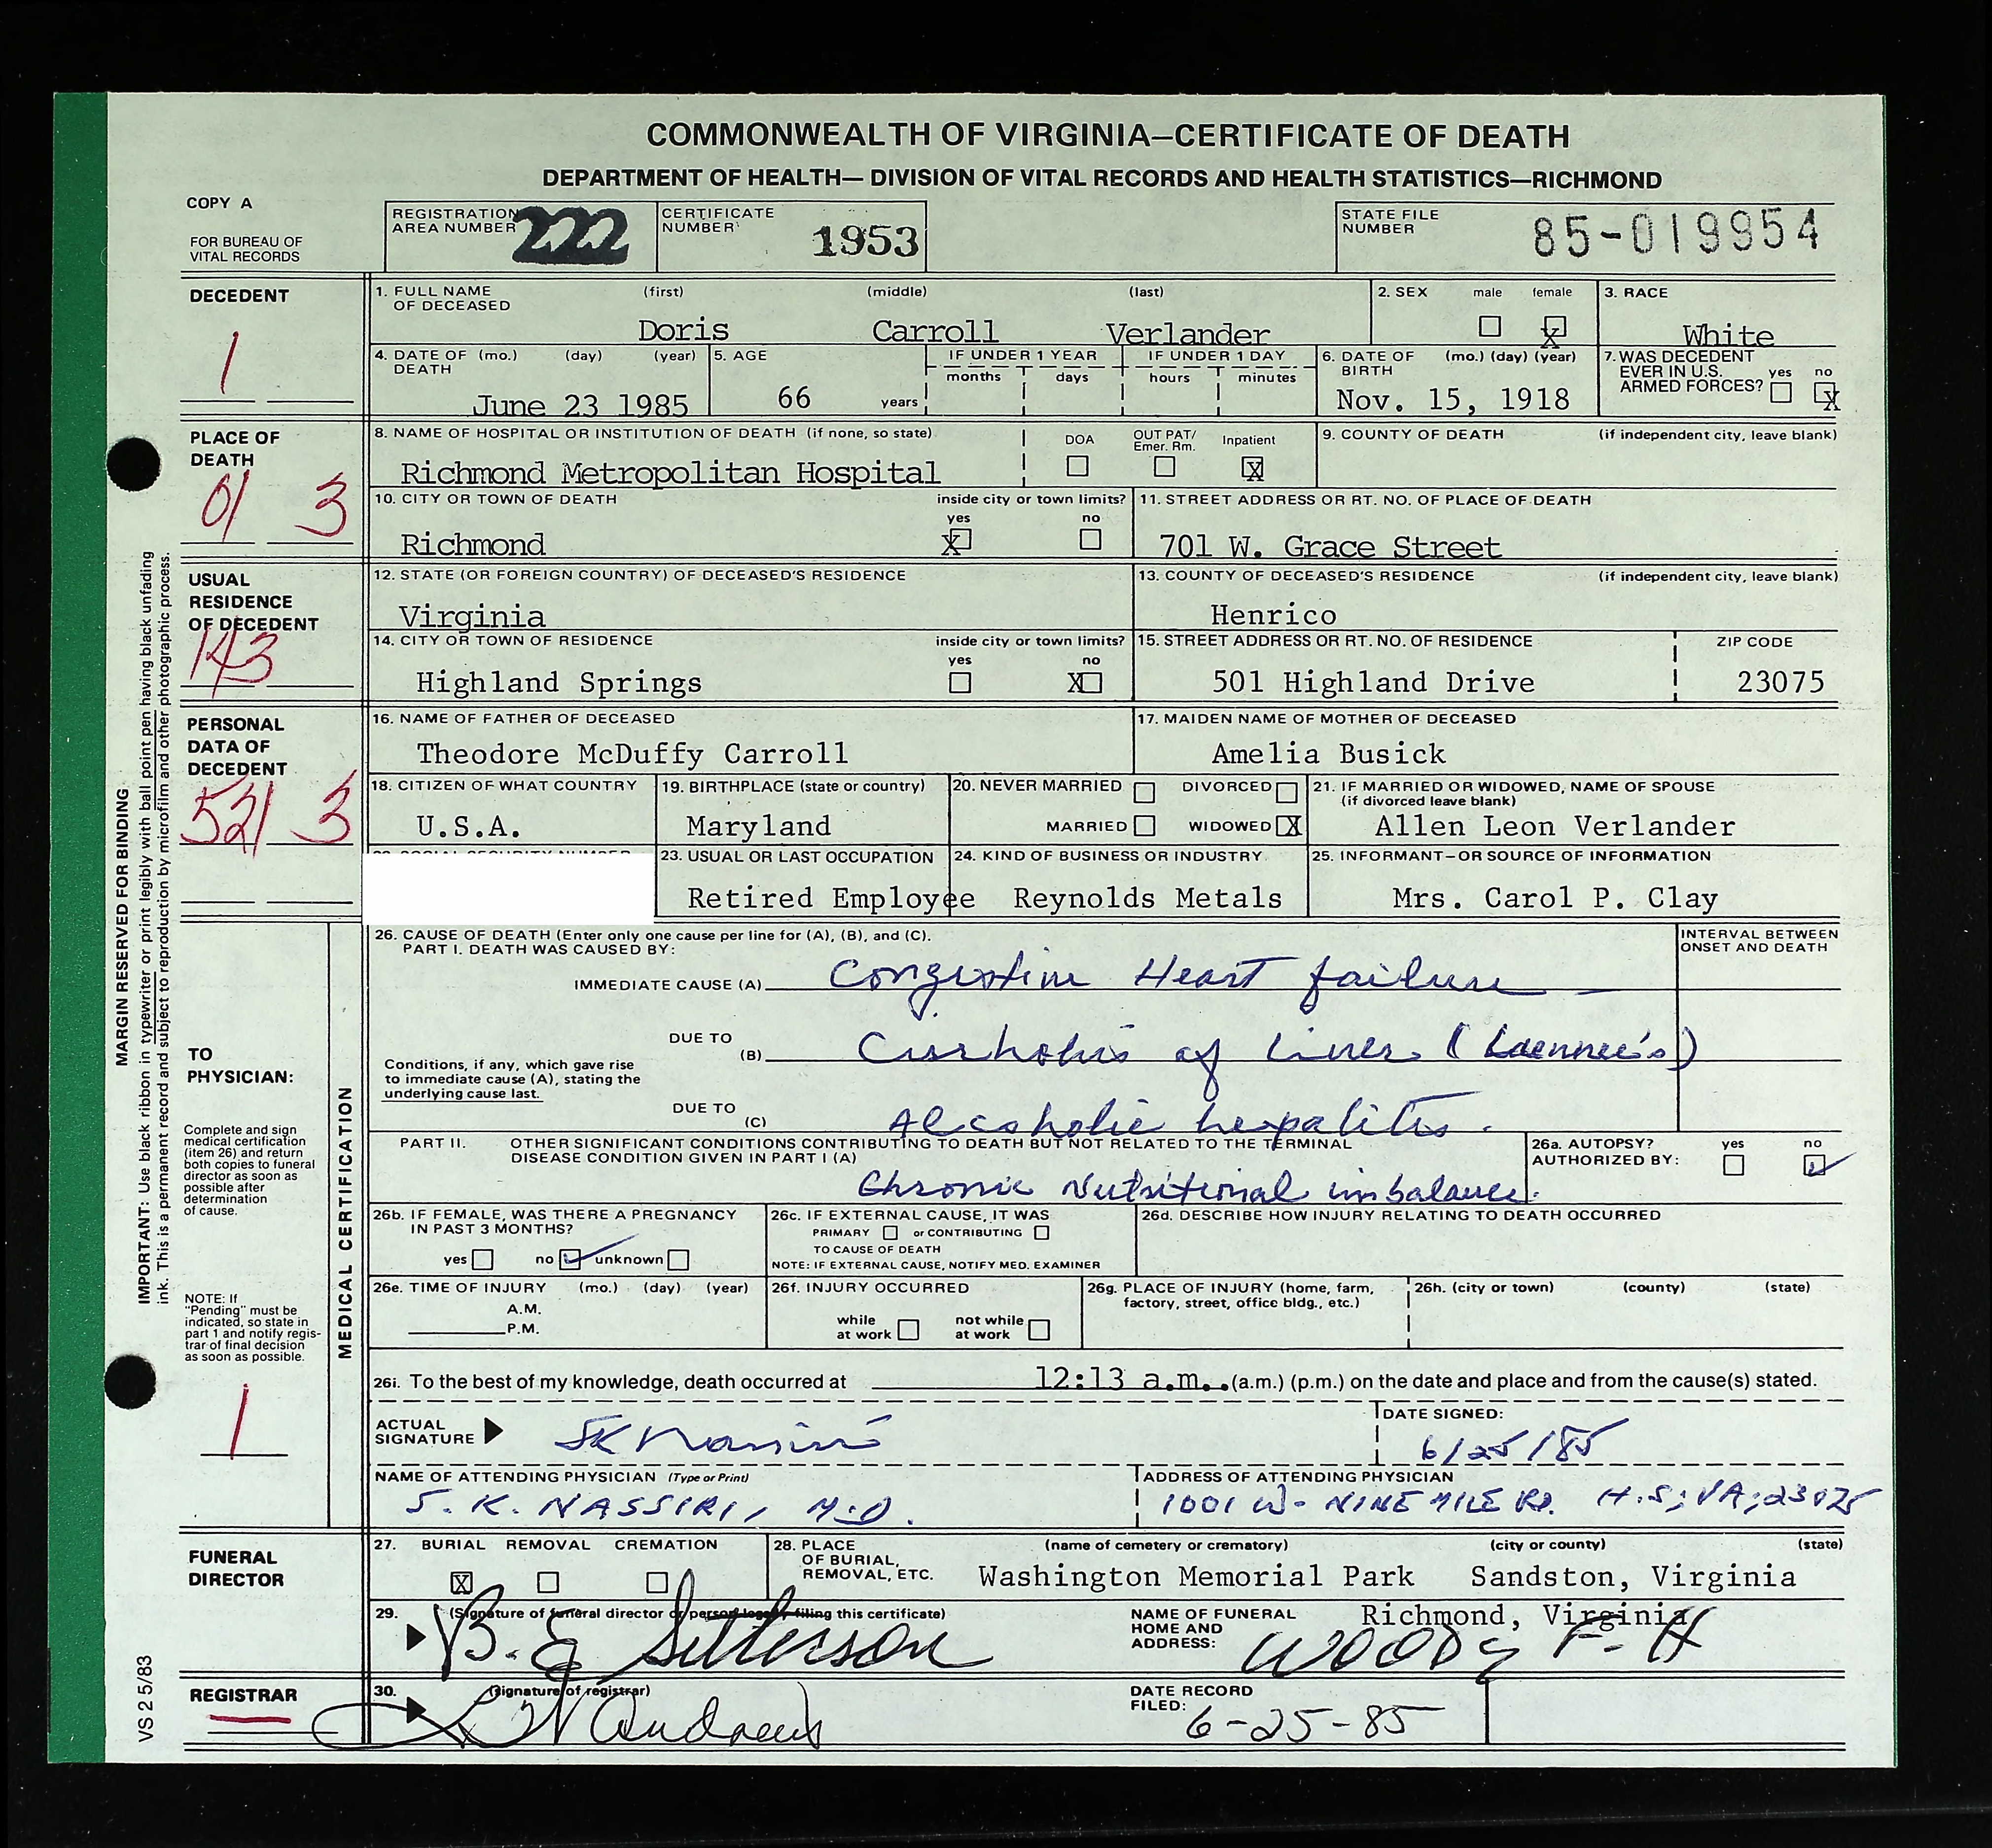 COMMONWEALTH OF VIRGINIA—CERTIFICATE OF DEATH
DEPARTMENT OF HEALTH— DIVISION OF VITAL RECORDS AND HEALTH STATISTICS—RICHMOND
COPY A
FOR BUREAU OF
VITAL RECORDS
REGISTRATION
AREA NUMBER 222
CERTIFICATE
NUMBER 1953
STATE FILE
NUMBER 85-019954
DECEDENT
1
1. FULL NAME OF DECEASED (first) (middle) (last)
Doris Carroll Verlander
2. SEX male female X
3. RACE
White
4. DATE OF DEATH (mo.) (day) (year)
June 23 1985
5. AGE
66 years
IF UNDER 1 YEAR
months days
IF UNDER 1 DAY
hours minutes
6. DATE OF BIRTH (mo.) (day) (year)
Nov. 15, 1918
7. WAS DECEDENT
EVER IN U.S.
ARMED FORCES? yes no X
PLACE OF
DEATH
01 3
8. NAME OF HOSPITAL OR INSTITUTION OF DEATH (if none, so state)
Richmond Metropolitan Hospital
DOA OUT PAT/ Emer. Rm. Inpatient X
9. COUNTY OF DEATH (if independent city, leave blank)
10. CITY OR TOWN OF DEATH inside city or town limits?
Richmond yes X no
11. STREET ADDRESS OR RT. NO. OF PLACE OF DEATH
701 W. Grace Street
USUAL
RESIDENCE
OF DECEDENT
143
12. STATE (OR FOREIGN COUNTRY) OF DECEASED'S RESIDENCE
Virginia
13. COUNTY OF DECEASED'S RESIDENCE (if independent city, leave blank)
Henrico
14. CITY OR TOWN OF RESIDENCE inside city or town limits?
Highland Springs yes no X
15. STREET ADDRESS OR RT. NO. OF RESIDENCE ZIP CODE
501 Highland Drive 23075
PERSONAL
DATA OF
DECEDENT
521 3
16. NAME OF FATHER OF DECEASED
Theodore McDuffy Carroll
17. MAIDEN NAME OF MOTHER OF DECEASED
Amelia Busick
18. CITIZEN OF WHAT COUNTRY
U.S.A.
19. BIRTHPLACE (state or country)
Maryland
20. NEVER MARRIED DIVORCED
MARRIED WIDOWED X
21. IF MARRIED OR WIDOWED, NAME OF SPOUSE
(if divorced leave blank)
Allen Leon Verlander
23. USUAL OR LAST OCCUPATION
Retired Employee
24. KIND OF BUSINESS OR INDUSTRY
Reynolds Metals
25. INFORMANT—OR SOURCE OF INFORMATION
Mrs. Carol P. Clay
MARGIN RESERVED FOR BINDING
IMPORTANT: Use black ribbon in typewriter or print legibly with ball point pen having black unfading
ink. This is a permanent record and subject to reproduction by microfilm and other photographic process.
VS 2 5/83
TO
PHYSICIAN:
Complete and sign
medical certification
(item 26) and return
both copies to funeral
director as soon as
possible after
determination
of cause.
NOTE: If
"Pending" must be
indicated, so state in
part 1 and notify regis-
trar of final decision
as soon as possible.
1
MEDICAL CERTIFICATION
26. CAUSE OF DEATH (Enter only one cause per line for (A), (B), and (C).
PART I. DEATH WAS CAUSED BY:
INTERVAL BETWEEN
ONSET AND DEATH
IMMEDIATE CAUSE (A) Congestive Heart failure
DUE TO
(B) Cirrhosis of Liver (Laennec's)
Conditions, if any, which gave rise
to immediate cause (A), stating the
underlying cause last.
DUE TO
(C) Alcoholic hepatitis.
PART II. OTHER SIGNIFICANT CONDITIONS CONTRIBUTING TO DEATH BUT NOT RELATED TO THE TERMINAL
DISEASE CONDITION GIVEN IN PART I (A)
Chronic Nutritional imbalance.
26a. AUTOPSY? yes no
AUTHORIZED BY:
26b. IF FEMALE, WAS THERE A PREGNANCY
IN PAST 3 MONTHS?
yes no unknown
26c. IF EXTERNAL CAUSE, IT WAS
PRIMARY or CONTRIBUTING
TO CAUSE OF DEATH
NOTE: IF EXTERNAL CAUSE, NOTIFY MED. EXAMINER
26d. DESCRIBE HOW INJURY RELATING TO DEATH OCCURRED
26e. TIME OF INJURY (mo.) (day) (year)
A.M.
P.M.
26f. INJURY OCCURRED
while at work not while at work
26g. PLACE OF INJURY (home, farm,
factory, street, office bldg., etc.)
26h. (city or town) (county) (state)
26i. To the best of my knowledge, death occurred at 12:13 a.m. (a.m.) (p.m.) on the date and place and from the cause(s) stated.
ACTUAL
SIGNATURE SK Nassiri
DATE SIGNED:
6/25/85
NAME OF ATTENDING PHYSICIAN (Type or Print)
S. K. NASSIRI, M.D.
ADDRESS OF ATTENDING PHYSICIAN
1001 W- NINE MILE RD. H.S; VA; 23075
FUNERAL
DIRECTOR
27. BURIAL REMOVAL CREMATION
X
28. PLACE
OF BURIAL,
REMOVAL, ETC.
(name of cemetery or crematory) (city or county) (state)
Washington Memorial Park Sandston, Virginia
29. (Signature of funeral director or person legally filing this certificate)
NAME OF FUNERAL
HOME AND
ADDRESS:
Richmond, Virginia
WOODY F-H
REGISTRAR
30. (Signature of registrar)
DATE RECORD
FILED: 6-25-85